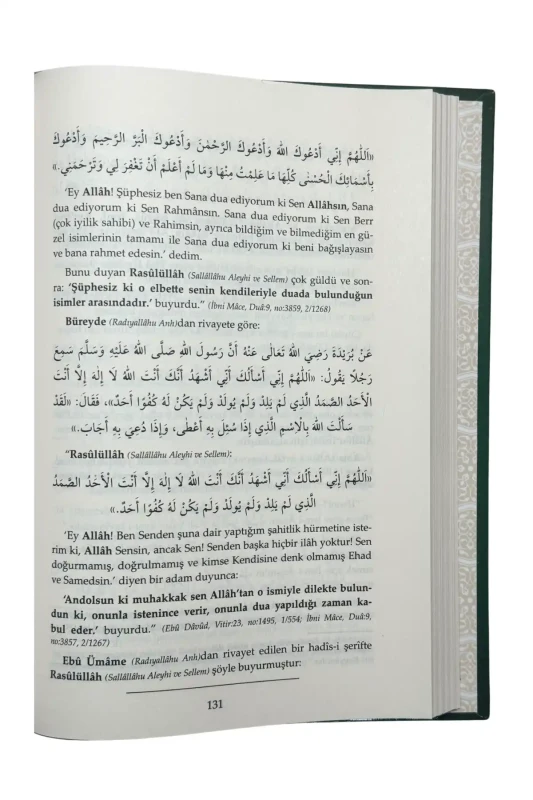 «اَللّٰهُمَّ إِنِّي أَدْعُوكَ اللّٰهَ وَأَدْعُوكَ الرَّحْمٰنَ وَأَدْعُوكَ الْبَرَّ الرَّحِيمَ وَأَدْعُوكَ
بِأَسْمَائِكَ الْحُسْنٰى كُلِّهَا مَا عَلِمْتُ مِنْهَا وَمَا لَمْ أَعْلَمْ أَنْ تَغْفِرَ لِي وَتَرْحَمَنِي.»
'Ey Allâh! Şüphesiz ben Sana dua ediyorum ki Sen Allâhsın, Sana
dua ediyorum ki Sen Rahmânsın. Sana dua ediyorum ki Sen Berr
(çok iyilik sahibi) ve Rahimsin, ayrıca bildiğim ve bilmediğim en gü-
zel isimlerinin tamamı ile Sana dua ediyorum ki beni bağışlayasın
ve bana rahmet edesin.' dedim.
Bunu duyan Rasûlüllâh (Sallâllâhu Aleyhi ve Sellem) çok güldü ve son-
ra: 'Şüphesiz ki o elbette senin kendileriyle duada bulunduğun
isimler arasındadır.' buyurdu." (İbni Mâce, Duâ:9, no:3859, 2/1268)
Büreyde (Radıyallâhu Anh)dan rivayete göre:
عَنْ بُرَيْدَةَ رَضِيَ اللّٰهُ تَعَالٰى عَنْهُ أَنَّ رَسُولَ اللّٰهِ صَلَّى اللّٰهُ عَلَيْهِ وَسَلَّمَ سَمِعَ
رَجُلًا يَقُولُ: «اَللّٰهُمَّ إِنِّي أَسْأَلُكَ أَنِّي أَشْهَدُ أَنَّكَ أَنْتَ اللّٰهُ لَا إِلٰهَ إِلَّا أَنْتَ
الْأَحَدُ الصَّمَدُ الَّذِي لَمْ يَلِدْ وَلَمْ يُولَدْ وَلَمْ يَكُنْ لَهُ كُفُوًا أَحَدٌ»، فَقَالَ: «لَقَدْ
سَأَلْتَ اللّٰهَ بِالْاِسْمِ الَّذِي إِذَا سُئِلَ بِهِ أَعْطٰى، وَإِذَا دُعِيَ بِهِ أَجَابَ.»
"Rasûlüllâh (Sallâllâhu Aleyhi ve Sellem):
«اَللّٰهُمَّ إِنِّي أَسْأَلُكَ أَنِّي أَشْهَدُ أَنَّكَ أَنْتَ اللّٰهُ لَا إِلٰهَ إِلَّا أَنْتَ الْأَحَدُ الصَّمَدُ
الَّذِي لَمْ يَلِدْ وَلَمْ يُولَدْ وَلَمْ يَكُنْ لَهُ كُفُوًا أَحَدٌ.»
'Ey Allâh! Ben Senden şuna dair yaptığım şahitlik hürmetine iste-
rim ki, Allâh Sensin, ancak Sen! Senden başka hiçbir ilâh yoktur! Sen
doğurmamış, doğrulmamış ve kimse Kendisine denk olmamış Ehad
ve Samedsin.' diyen bir adam duyunca:
'Andolsun ki muhakkak sen Allâh'tan o ismiyle dilekte bulun-
dun ki, onunla istenince verir, onunla dua yapıldığı zaman ka-
bul eder.' buyurdu." (Ebû Dâvûd, Vitir:23, no:1495, 1/554; İbni Mâce, Duâ:9,
no:3857, 2/1267)
Ebû Ümâme (Radıyallâhu Anh)dan rivayet edilen bir hadîs-i şerifte
Rasûlüllâh (Sallâllâhu Aleyhi ve Sellem) şöyle buyurmuştur:
131